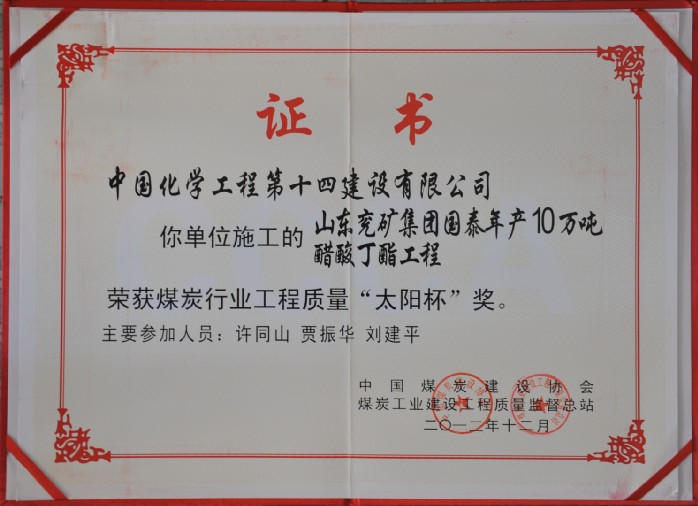 证书
中国化学工程第十四建设有限公司
你单位施工的 山东兖矿集团国泰年产10万吨
醋酸丁酯工程
荣获煤炭行业工程质量“太阳杯”奖。
主要参加人员：许同山 贾振华 刘建平
中国煤炭建设协会
煤炭工业建设工程质量监督总站
二〇一二年十二月